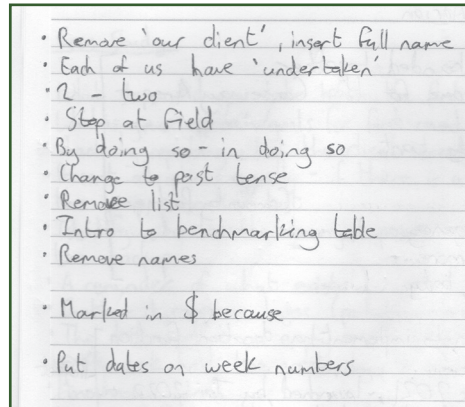 · Remove 'our client', insert full name
· Each of us have 'undertaken'
· 2 - two
· Stop at field
· By doing so - in doing so
· Change to post tense
· Remove list
· Intro to benchmarking table
· Remove names
· Marked in $ because
· Put dates on week numbers